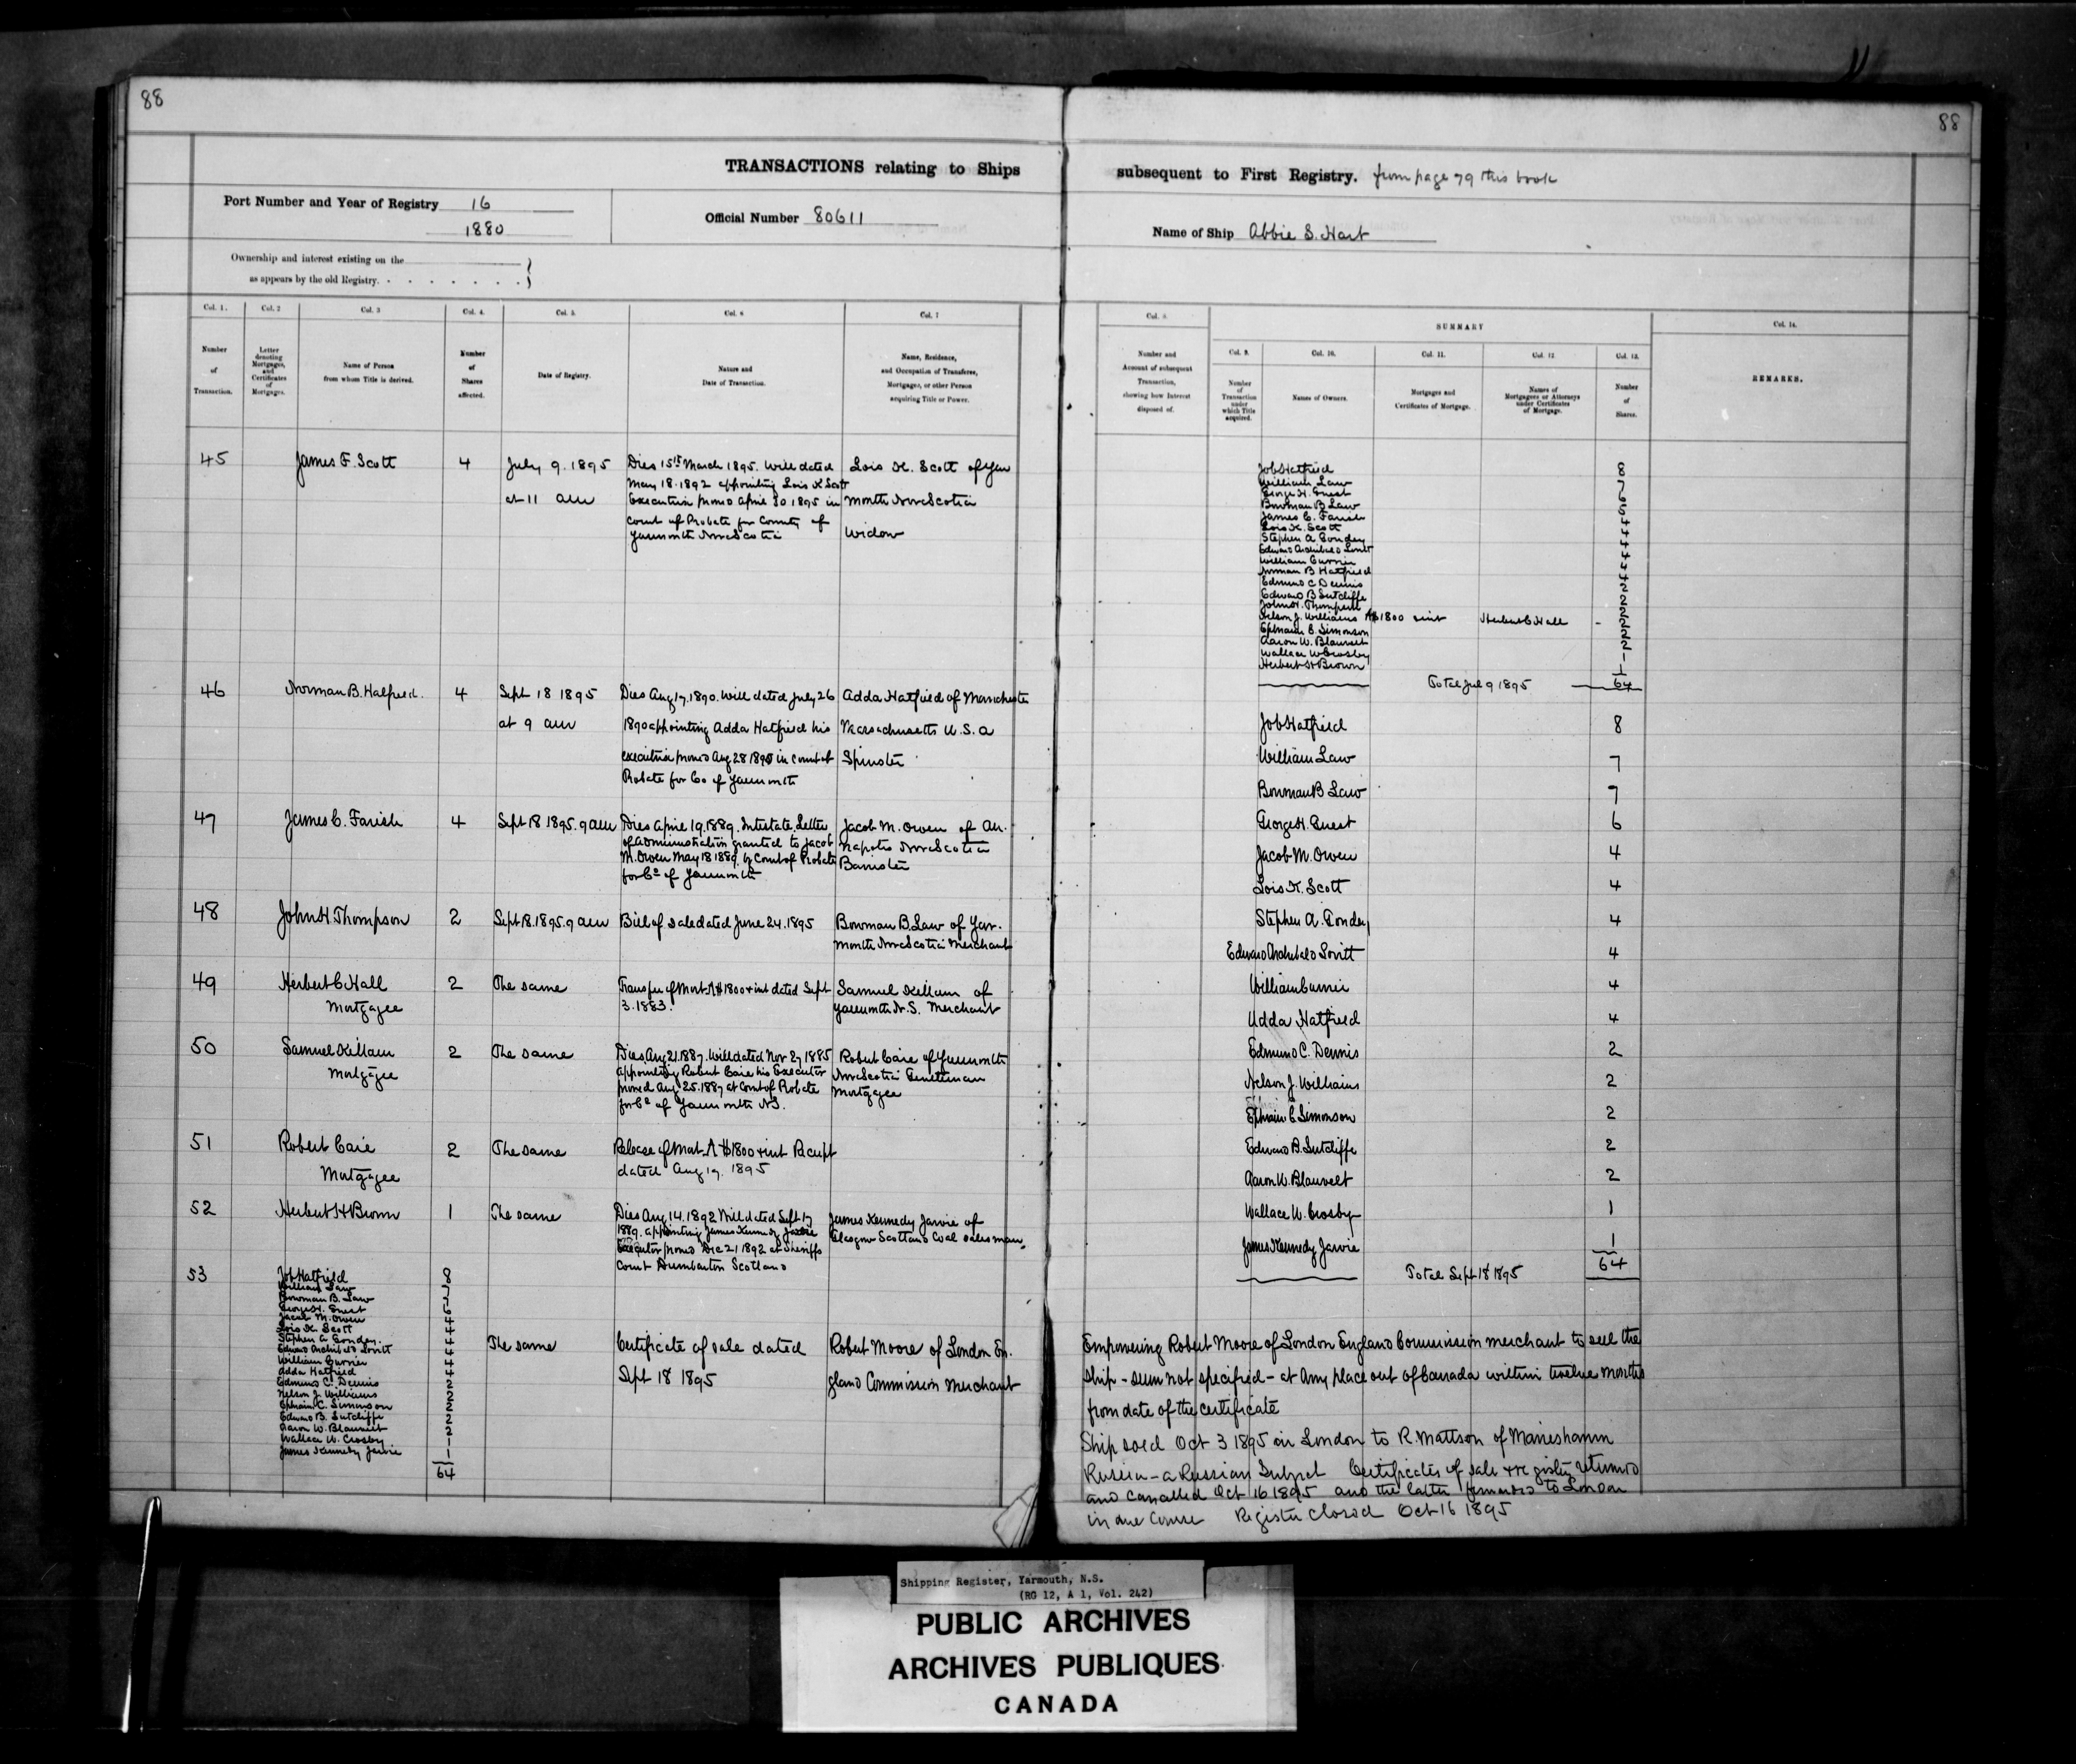 88
88
TRANSACTIONS relating to Ships subsequent to First Registry. from page 79 this book
Port Number and Year of Registry 16
1880
Official Number 80611
Name of Ship Abbie S. Hart
Ownership and interest existing on the
as appears by the old Registry.
Col. 1.
Number of Transaction.
Col. 2
Letter denoting Mortgages, and Certificates of Mortgages.
Col. 3
Name of Person from whom Title is derived.
Col. 4.
Number of Shares affected.
Col. 5.
Date of Registry.
Col. 6
Nature and Date of Transaction.
Col. 7
Name, Residence, and Occupation of Transferee, Mortgagee, or other Person acquiring Title or Power.
Col. 8.
Number and Account of subsequent Transaction, showing how Interest disposed of.
SUMMARY
Col. 9.
Number of Transaction under which Title acquired.
Col. 10.
Names of Owners.
Col. 11.
Mortgages and Certificates of Mortgage.
Col. 12
Names of Mortgagees or Attorneys under Certificates of Mortgage.
Col. 13.
Number of Shares.
Col. 14.
REMARKS.
45
James F. Scott
4
July 9. 1895
at 11 am
Died 15th March 1895. Will dated
May 18. 1892 appointing Lois K Scott
Executrix proved April 30 1895 in
Court of Probate for County of
Yarmouth Nova Scotia
Lois K. Scott of Yar
mouth Nova Scotia
Widow
46
Norman B. Hatfield.
4
Sept 18 1895
at 9 am
Died Aug 17. 1890. Will dated July 26
1890 appointing Adda Hatfield his
executrix proved Aug 28 1890 in Court of
Probate for Co of Yarmouth
Adda Hatfield of Manchester
Massachusetts U.S.A
Spinster
47
James C. Farish
4
Sept 18 1895. 9 am
Died April 19. 1889. Intestate. Letter
of Administration granted to Jacob
M. Owen May 18 1889. by Court of Probate
for Co of Yarmouth
Jacob M. Owen of An.
napolis Nova Scotia
Barrister
48
John H. Thompson
2
Sept 18. 1895. 9 am
Bill of sale dated June 24. 1895
Bowman B. Law of Yar.
mouth Nova Scotia Merchant
49
Herbert C Hall
Mortgagee
2
The same
Transfer of Mort. A $1800 + int dated Sept
3. 1883.
Samuel Killam of
Yarmouth N.S. Merchant
50
Samuel Killam
Mortgagee
2
The same
Died Aug 21. 1887. Will dated Nov 27 1885
appointing Robert Caie his Executor
proved Aug 25. 1887 at Court of Probate
for Co of Yarmouth NS.
Robert Caie of Yarmouth
Nova Scotia Gentleman
Mortgagee
51
Robert Caie
Mortgagee
2
The same
Release of Mort. A $1800 + int Receipt
dated Aug 17. 1895
52
Herbert H Brown
1
The same
Died Aug. 14. 1892 Will dated Sept 17
1889. appointing James Kennedy Jarvie
Executor proved Dec 21 1892 at Sheriffs
Court Dumbarton Scotland
James Kennedy Jarvie of
Glasgow Scotland Coal salesman
53
Job Hatfield 8
William Law 7
Bowman B. Law 7
George H. Guest 6
Jacob M. Owen 4
Lois K. Scott 4
Stephen A Gonday. 4
Edward Archibald Lovitt 4
William Currier 4
Adda Hatfield 4
Edmund C. Dennis 2
Nelson J. Williams 2
Ephraim C. Simonson 2
Edward B. Sutcliffe 2
Aaron W. Blauvelt 2
Wallace W. Crosby 1
James Kennedy Jarvie 1
64
The same
Certificate of sale dated
Sept 18 1895
Robert Moore of London En.
gland Commission Merchant
Job Hatfield 8
William Law
George H. Guest
Bowman B Law
James C. Farish
Lois K. Scott
Stephen A Gonday
Edward Archibald Lovitt
William Currier
Norman B Hatfield
Edmund C Dennis
Edward B Sutcliffe
John H. Thompson
Nelson J. Williams A $1800 + int Herbert C Hall
Ephraim C. Simonson
Aaron W. Blauvelt
Wallace W Crosby
Herbert H Brown
Total Jul 9 1895 64
Job Hatfield 8
William Law 7
Bowman B Law 7
George H. Guest 6
Jacob M. Owen 4
Lois K. Scott 4
Stephen A. Gonday 4
Edward Archibald Lovitt 4
William Currier 4
Adda Hatfield 4
Edmund C. Dennis 2
Nelson J. Williams 2
Ephraim C Simonson 2
Edward B. Sutcliffe 2
Aaron W. Blauvelt 2
Wallace W. Crosby 1
James Kennedy Jarvie 1
Total Sept 18 1895 64
Empowering Robert Moore of London England Commission merchant to sell the
ship - sum not specified - at any place out of Canada within twelve months
from date of the certificate
Ship sold Oct 3 1895 in London to R. Mattson of Marieshamn
Russia - a Russian Subject Certificates of sale & registry returned
and cancelled Oct 16 1895 and the latter forwarded to London
in due course Register closed Oct 16 1895
Shipping Register, Yarmouth, N.S.
(RG 12, A 1, Vol. 242)
PUBLIC ARCHIVES
ARCHIVES PUBLIQUES
CANADA